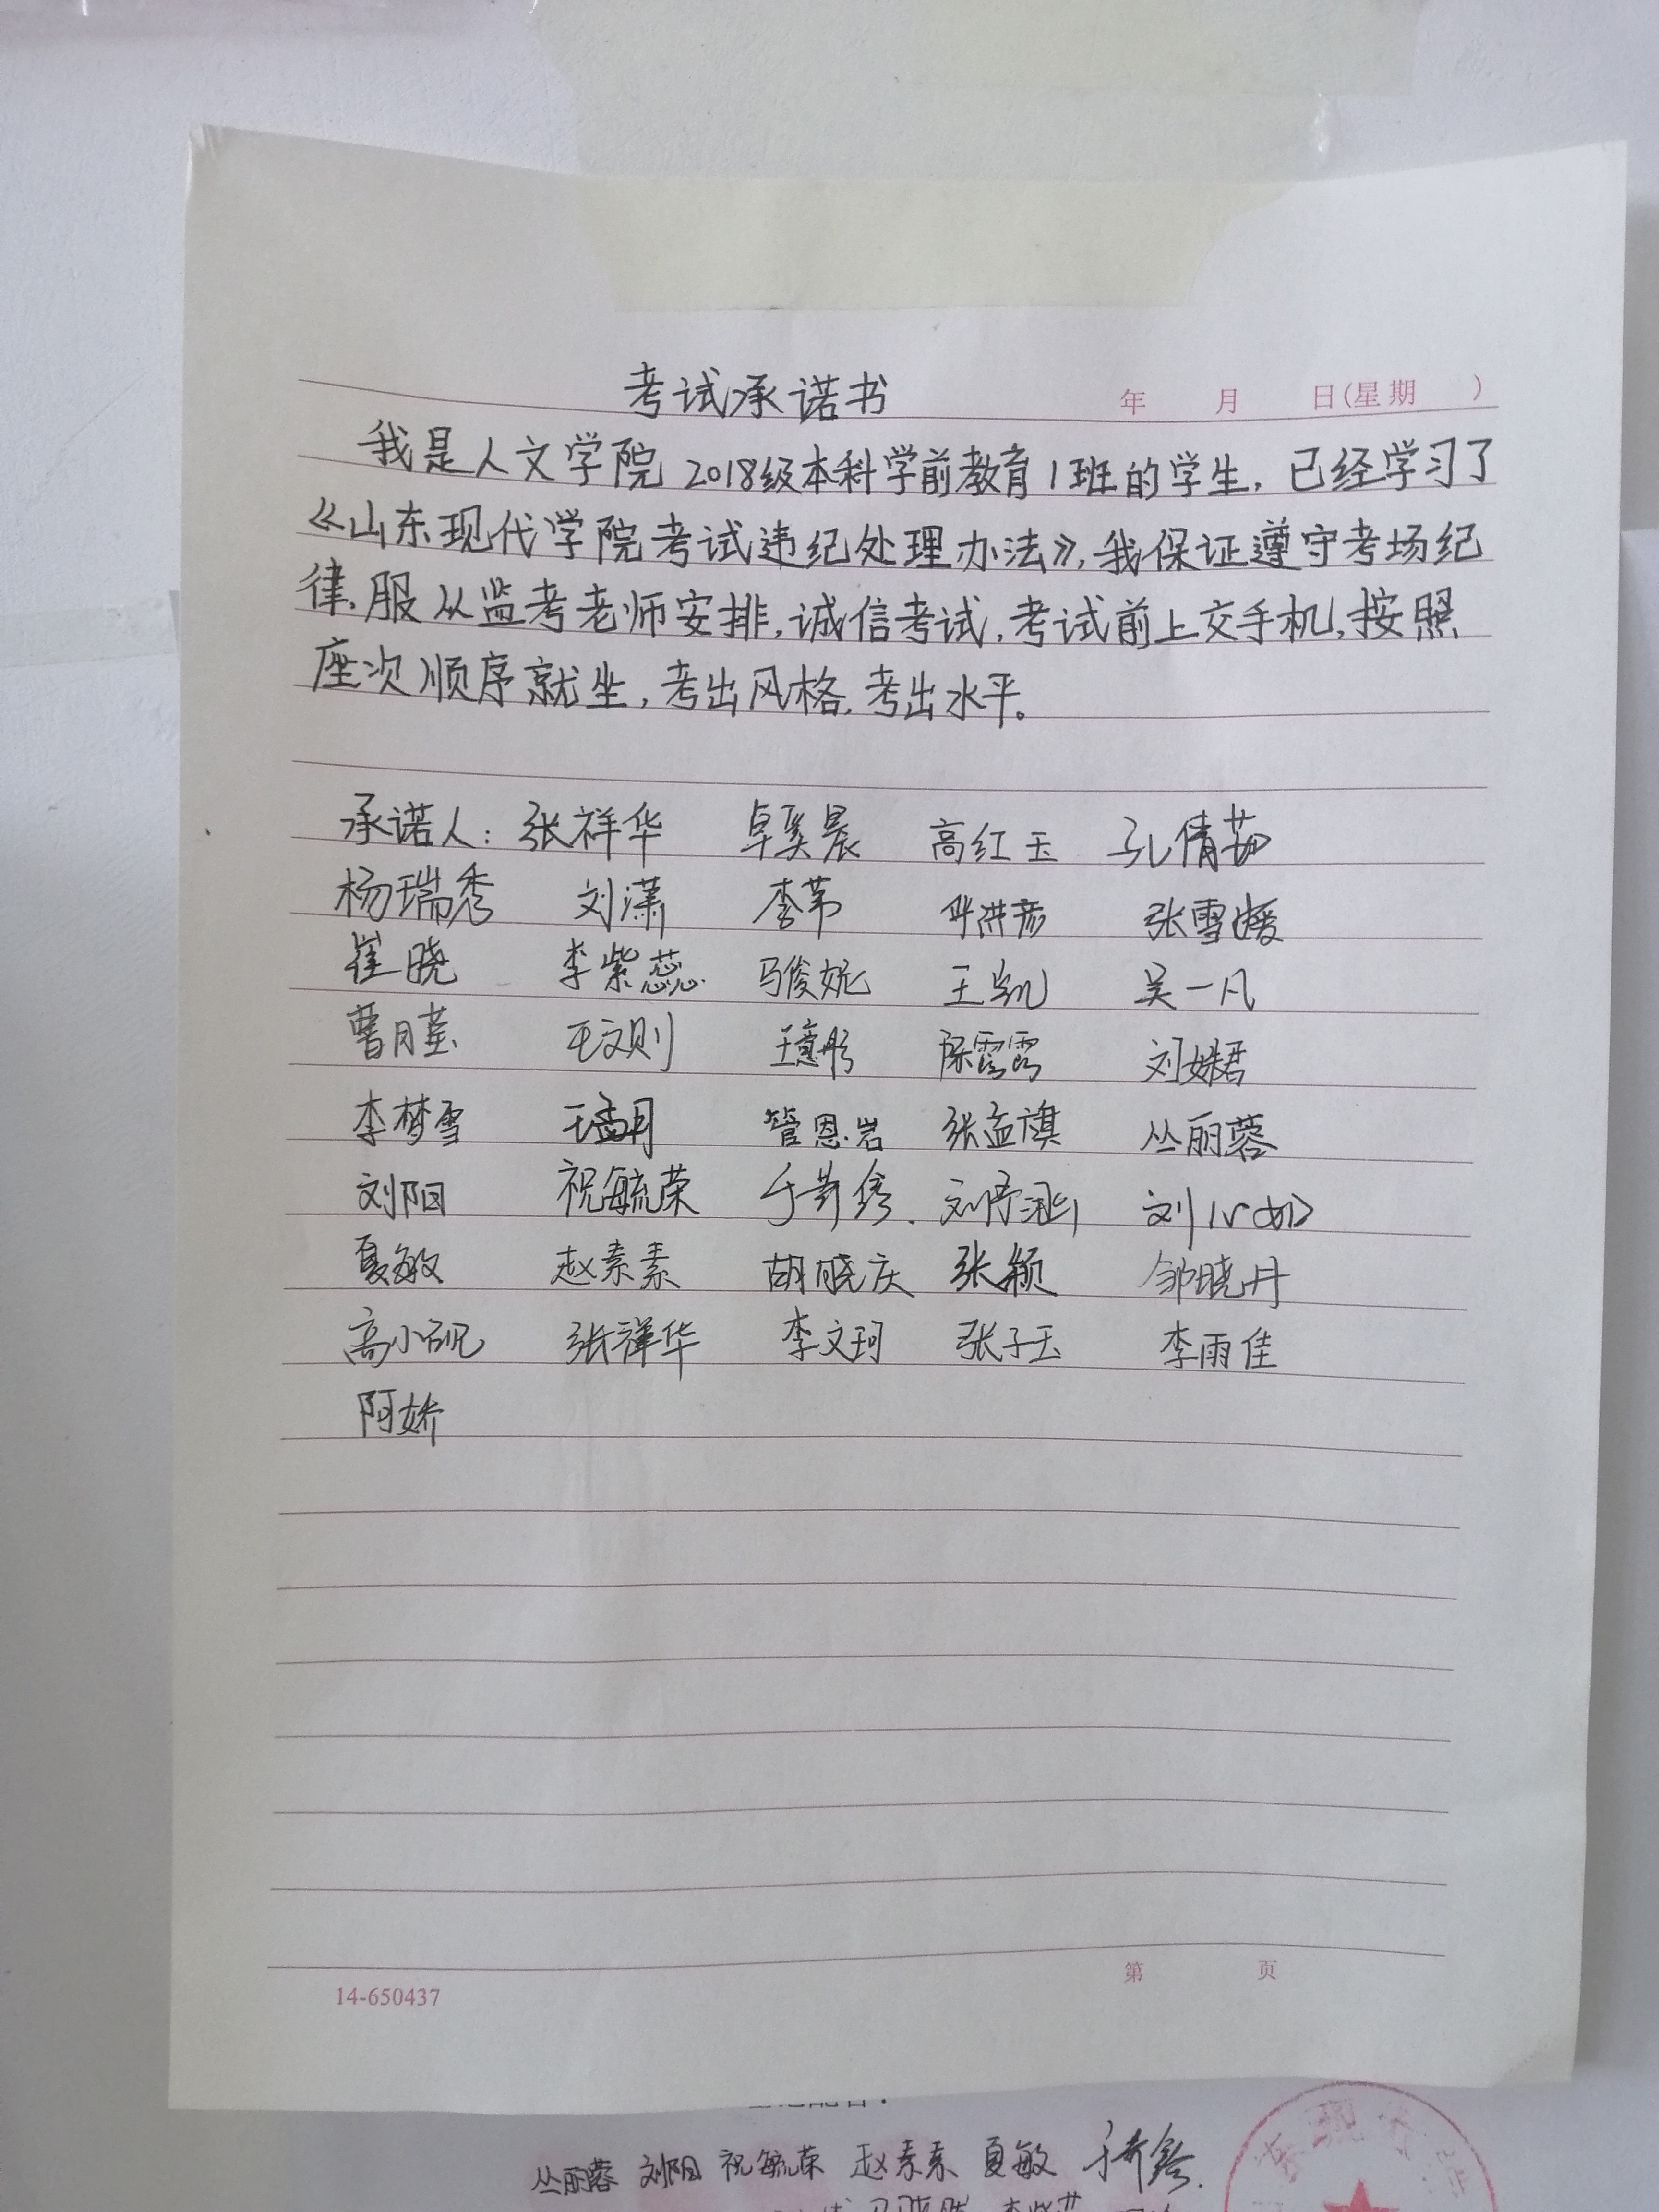 考试承诺书 年 月 日(星期 )
我是人文学院2018级本科学前教育1班的学生，已经学习了
《山东现代学院考试违纪处理办法》，我保证遵守考场纪
律，服从监考老师安排，诚信考试，考试前上交手机，按照
座次顺序就坐，考出风格，考出水平。
承诺人：张祥华 卓奚晨 高红玉 孔倩茹
杨瑞秀 刘潇 李芾 张雪媛
崔晓 李紫蕊 马俊妮 王凯 吴一凡
曹月莹 王文则 王意彤 陈雪雪 刘姝君
李梦雪 王孟月 管恩岩 张孟旗 丛丽蓉
刘阳 祝毓荣 刘心如
夏敏 赵素素 胡晓庆 张颖 邹晓丹
高小砚 张祥华 李文珂 张子玉 李雨佳
阿娇
第 页
14-650437
丛丽蓉 刘阳 祝毓荣 赵素素 夏敏